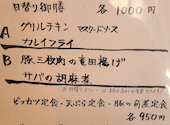 日替り御膳 各1000円
A グリルチキン マスタードソース
カレイフライ
B 豚三枚肉の竜田揚げ
サバの胡麻煮
ビッカツ定食・天ぷら定食・豚の角煮定食
各950円